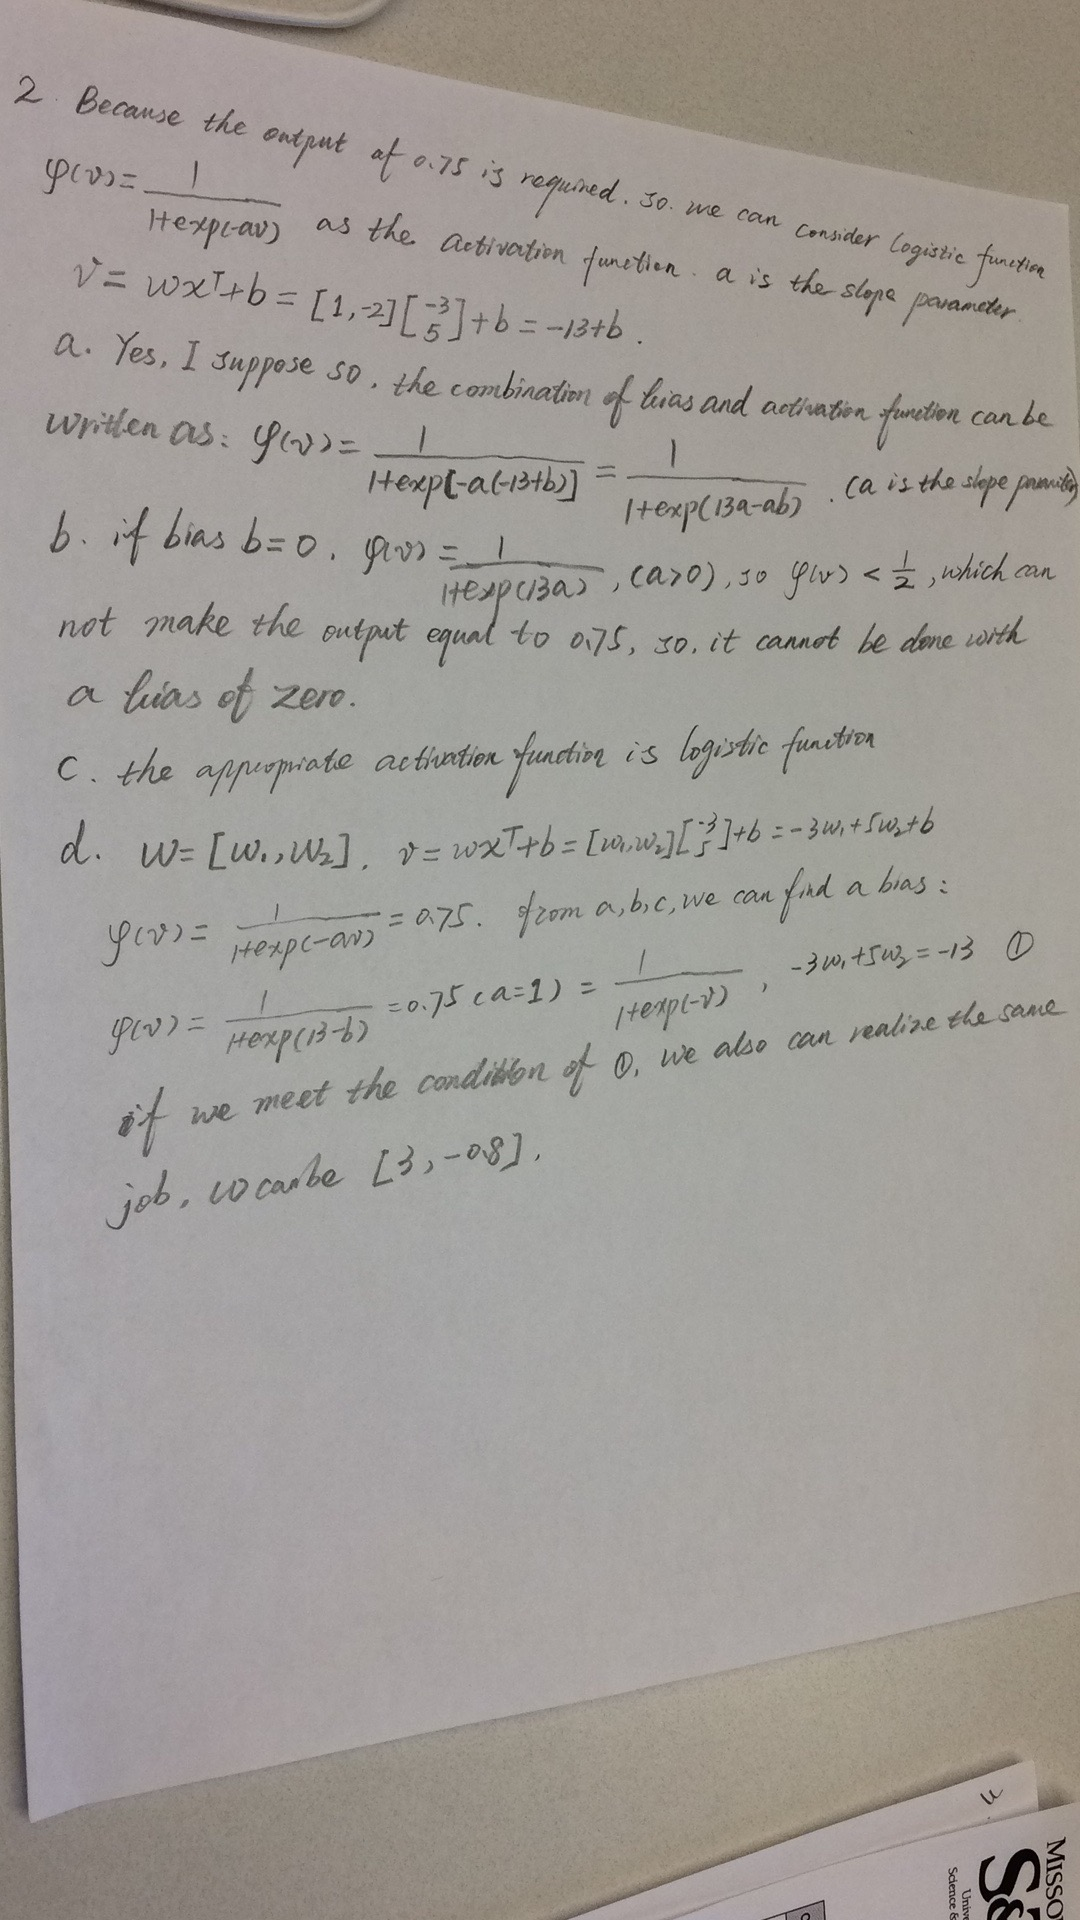 2. Because the output of 0.75 is required. so. we can consider logistic function
φ(v)= 1/(1+exp(-av)) as the activation function. a is the slope parameter.
v = wxᵀ+b = [1,-2][-3 5]+b = -13+b.
a. Yes, I suppose so, the combination of bias and activation function can be
written as: φ(v)= 1/(1+exp[-a(-13+b)]) = 1/(1+exp(13a-ab)). (a is the slope
b. if bias b=0. φ(v) = 1/(1+exp(13a)), (a>0), so φ(v) < 1/2, which can
not make the output equal to 0.75, so, it cannot be done with
a bias of zero.
c. the appropriate activation function is logistic function
d. W= [w₁, w₂]. v = wxᵀ+b = [w₁,w₂][-3 5]+b = -3w₁+5w₂+b
φ(v)= 1/(1+exp(-av)) = 0.75. from a,b,c, we can find a bias:
φ(v)= 1/(1+exp(13-b)) = 0.75 (a=1) = 1/(1+exp(-v)), -3w₁+5w₂ = -13 ①
if we meet the condition of ①, we also can realize the same
job. w can be [3,-0.8].
MISSO
S&
Unive
Science &